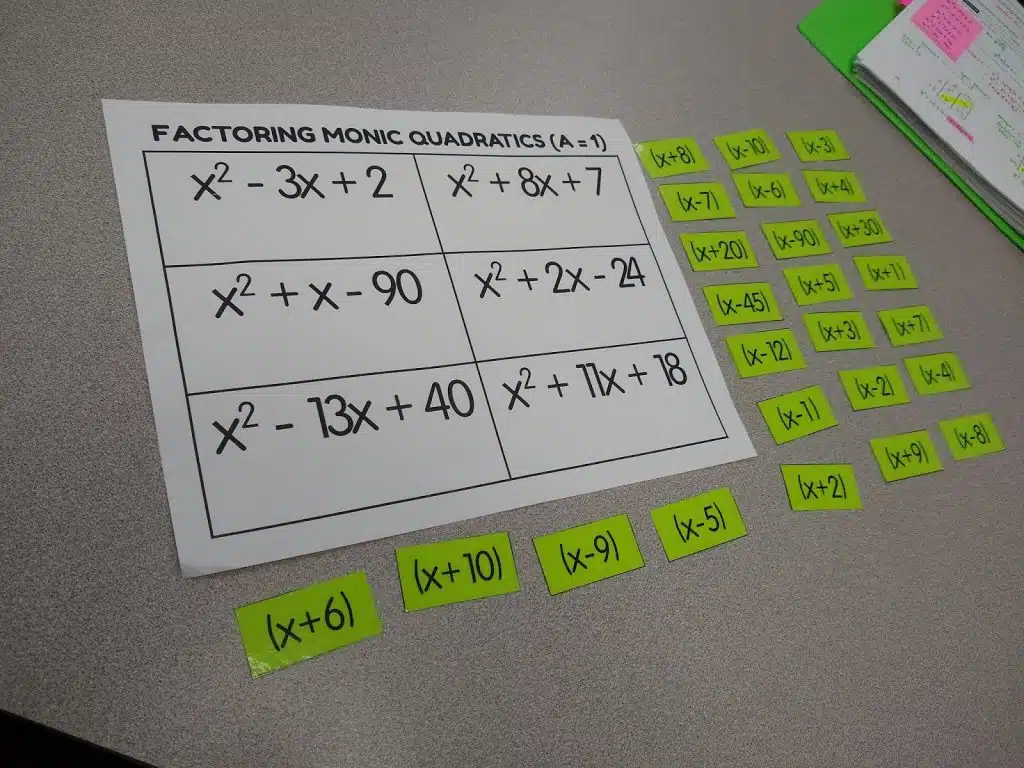 FACTORING MONIC QUADRATICS (A = 1)
x² - 3x + 2
x² + 8x + 7
x² + x - 90
x² + 2x - 24
x² - 13x + 40
x² + 11x + 18
(x+8)
(x-10)
(x-3)
(x-7)
(x-6)
(x+4)
(x+20)
(x-90)
(x+30)
(x-45)
(x+5)
(x+1)
(x-12)
(x+3)
(x+7)
(x-1)
(x-2)
(x-4)
(x+2)
(x+9)
(x-8)
(x+6)
(x+10)
(x-9)
(x-5)